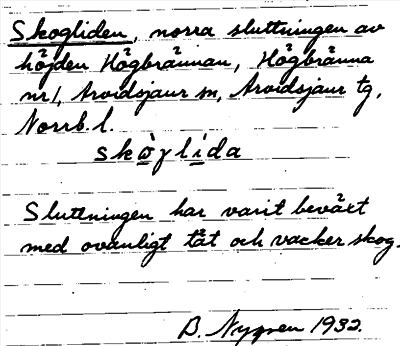 Skogliden, norra sluttningen av
höjden Högbrännan, Högbränna
nr 1, Arvidsjaur sn, Arvidsjaur tg,
Norrb. l.
skòglida
Sluttningen har varit beväxt
med ovanligt tät och vacker skog.
B. Nygren 1932.